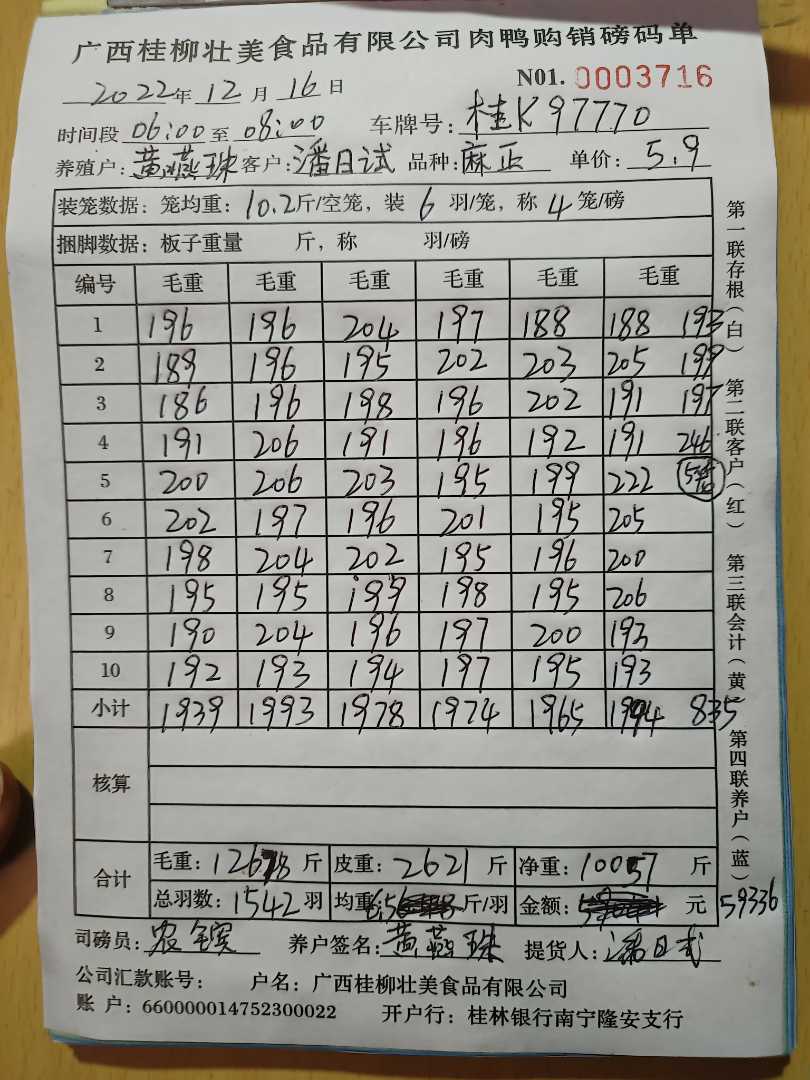 广西桂柳壮美食品有限公司肉鸭购销磅码单
2022年12月16日 N01. 0003716
时间段06:00至08:00 车牌号:桂K97770
养殖户:黄燕珠 客户:潘日试 品种:麻正 单价:5.9
装笼数据:笼均重:10.2斤/空笼,装6羽/笼,称4笼/磅
捆脚数据:板子重量 斤,称 羽/磅
编号 毛重 毛重 毛重 毛重 毛重 毛重
1 196 196 204 197 188 188 193
2 189 196 195 202 203 205 199
3 186 196 198 196 202 191 197
4 191 206 191 196 192 191 246
5 200 206 203 195 199 222
6 202 197 196 201 195 205
7 198 204 202 195 196 200
8 195 195 199 198 195 206
9 190 204 196 197 200 193
10 192 193 194 197 195 193
小计 1939 1993 1978 1974 1965 1994 835
核算
合计 毛重:12678斤 皮重:2621斤 净重:10057斤
总羽数:1542羽 均重: 斤/羽 金额: 元 59336
司磅员: 养户签名:黄燕珠 提货人:潘日试
公司汇款账号: 户名:广西桂柳壮美食品有限公司
账 户:660000014752300022 开户行:桂林银行南宁隆安支行
第一联存根(白) 第二联客户(红) 第三联会计(黄) 第四联养户(蓝)